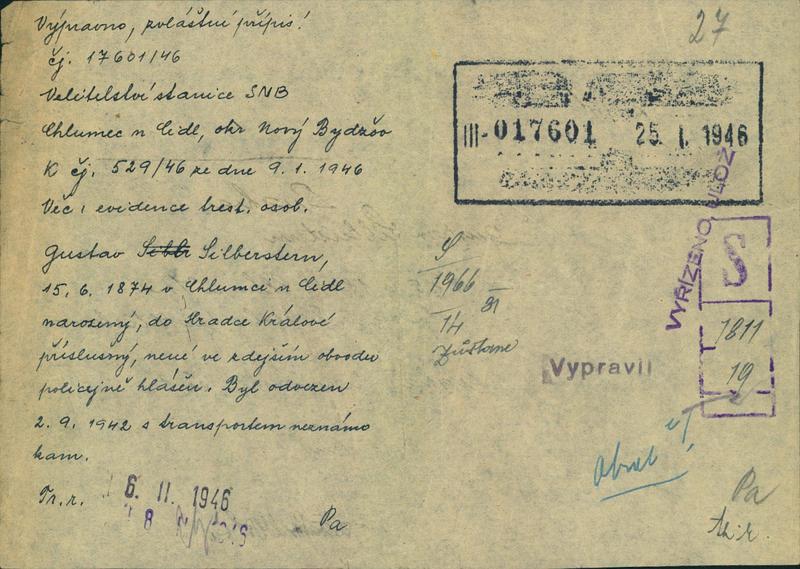 27
Výpravno, zvláštní přípis!
čj. 17601/46
Velitelství stanice SNB
Chlumec n Cidl, okr Nový Bydžov
K čj. 529/46 ze dne 9. 1. 1946
Věc: evidence trest. osob.
Gustav Silberstern,
15. 6. 1874 v Chlumci n Cidl
narozený, do Hradce Králové
příslušný, není ve zdejším obvodu
policejně hlášen. Byl odvezen
2. 9. 1942 s transportem neznámo
kam.
Tr. r.
6. II. 1946
Pa
III-017601 25. I. 1946
VYŘÍZENO ULOŽ
S
1811
19
2
S
1966
14
81
Zůstane
Vypravil
Obrať
Pa